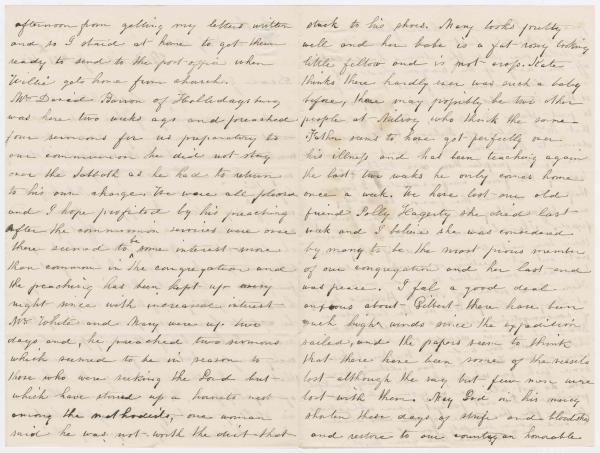 afternoon from getting my letters written
and so I staid at home to get them
ready to send to the post-office when
Willie gets home from church.
Mr David Barron of Hollidaysburg
was here two weeks ago and preached
four sermons for us preparatory to
our communion he did not stay
over the Sabbath as he had to return
to his own charge. We were all pleased
and I hope profited by his preaching
After the communion services were over
there seemed to be some interest more
than common in the congregation and
the preaching has been kept up every
night since with increased interest
Mr White and Mary were up two
days and he preached two sermons
which seemed to be in season to
those who were seeking the Lord but
which have stired up a hornets nest
among the methodists, one woman
said he was not worth the dirt that
stuck to his shoes. Mary looks pretty
well and her babe is a fat rosy looking
little fellow and is not cross. Kate
thinks there hardly ever was such a baby
before, there may propibly be two other
people at Milroy who think the same.
John seems to have got perfectly over
his illness and has been teaching again
the last two weeks he only comes home
once a week. We have lost our old
friend Polly Hagerty she died last
week and I believe she was considered
by many to be the most pious member
of our congregation and her last end
was peace. I feel a good deal
anxious about Gilbert there have been
such high winds since the expedition
sailed, and the papers seem to think
that there have been some of the vessels
lost although the say but few men were
lost with them. May God in his mercy
shorten these days of strife and bloodshed
and restore to our country an honorable